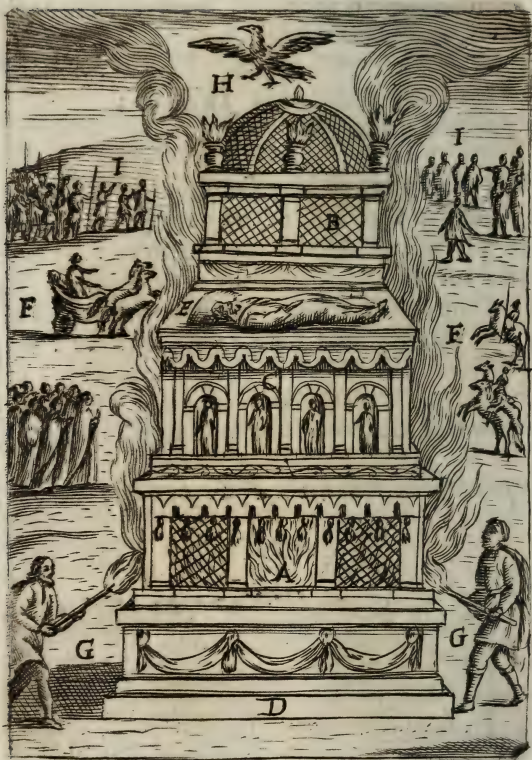 H
I
I
B
F
E
A
G
G
D